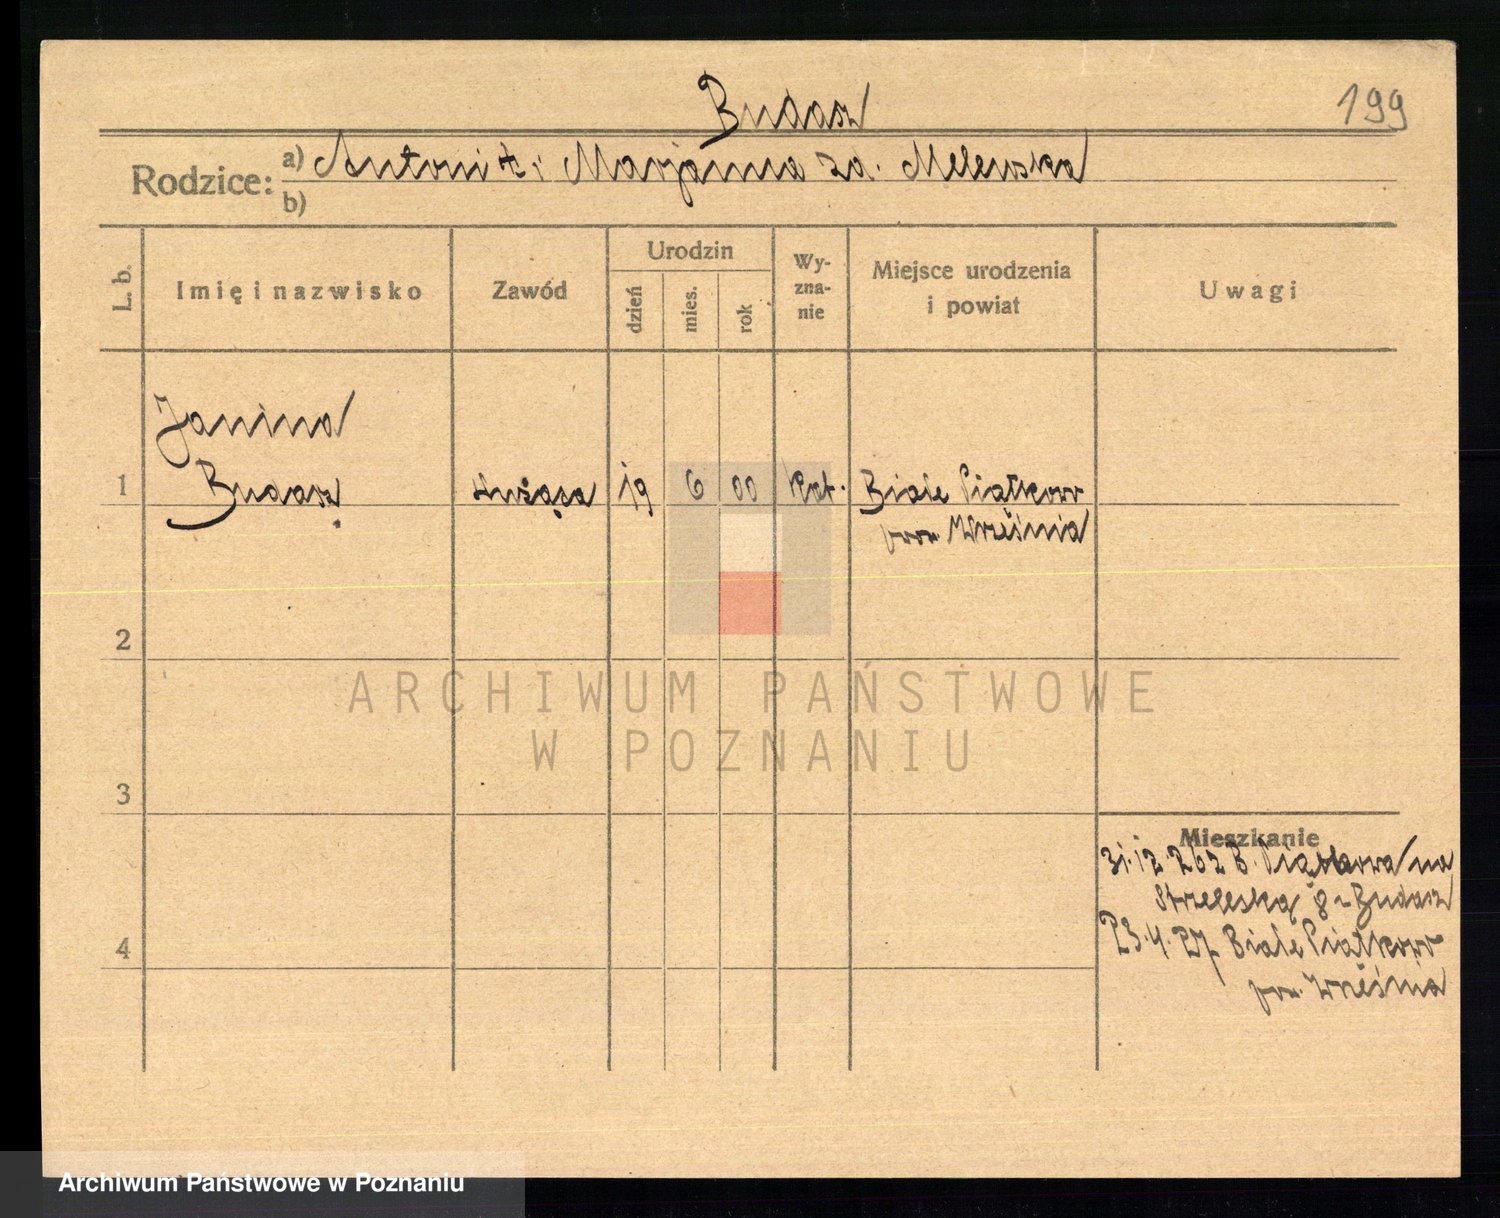 Budasz
199
Rodzice:
a) Antoni i Marjanna zd. Melewska
b)
L. b.
Imię i nazwisko
Zawód
Urodzin
dzień
mies.
rok
Wy-
zna-
nie
Miejsce urodzenia
i powiat
Uwagi
Janina
1 Budasz służąca 19 6 00 kat. Białe Piątkowo
pow. Września
2
ARCHIWUM PAŃSTWOWE
W POZNANIU
3
Mieszkanie
31.12.26 z B. Piątkowa na
Strzelecką 8 Budasz
4
23.4.27 Białe Piątkowo
pow. Września
Archiwum Państwowe w Poznaniu